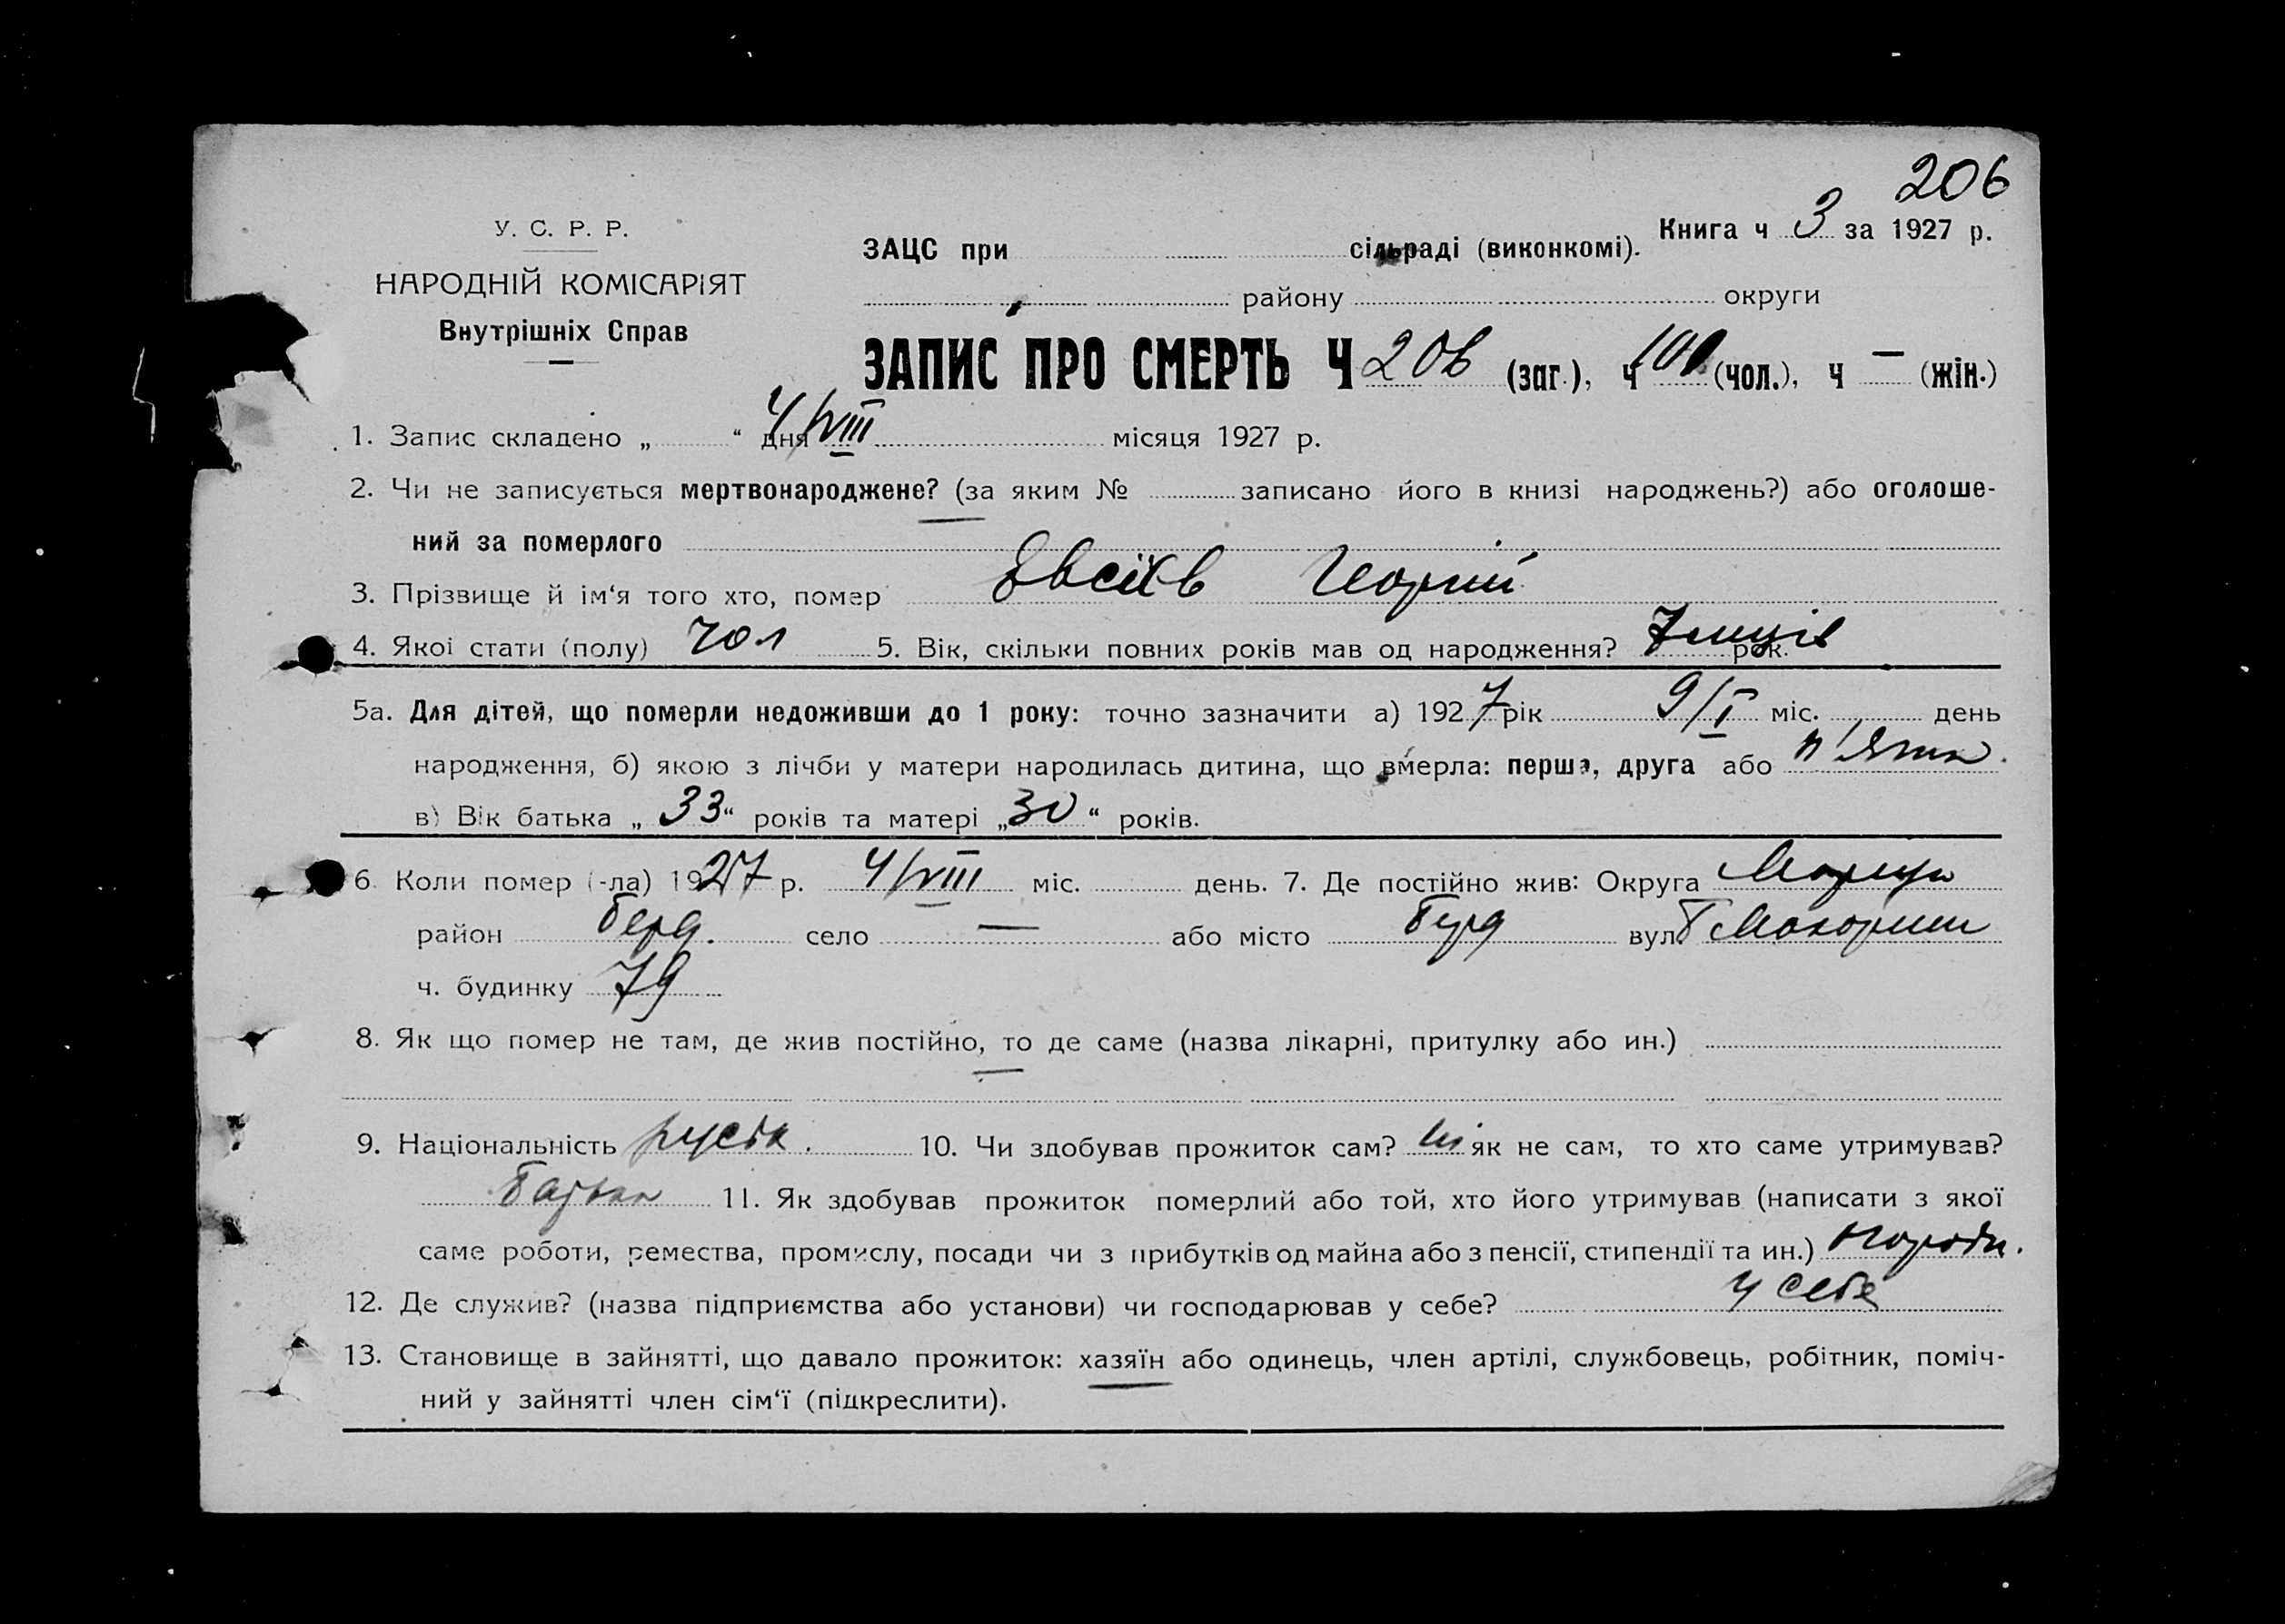 206
У. С. Р. Р.
Книга ч 3 за 1927 р.
ЗАЦС при сільраді (виконкомі).
НАРОДНІЙ КОМІСАРІЯТ
району округи
Внутрішніх Справ
ЗАПИС ПРО СМЕРТЬ Ч 206 (заг.), ч (чол.), ч — (жін.)
1. Запис складено „ “ дня 4/VIII місяця 1927 р.
2. Чи не записується мертвонароджене? (за яким № записано його в книзі народжень?) або оголоше-
ний за померлого
3. Прізвище й ім‘я того хто, помер Євсіїв Георгій
4. Якої стати (полу) чол 5. Вік, скільки повних років мав од народження? 7 місців рок.
5а. Для дітей, що померли недоживши до 1 року: точно зазначити а) 1927 рік 9/I міс. день
народження, б) якою з лічби у матери народилась дитина, що вмерла: перша, друга або п'ята
в) Вік батька „ 33 “ років та матері „ 30 “ років.
6. Коли помер (-ла) 1927 р. 4/VIII міс. день. 7. Де постійно жив: Округа
район Берд. село — або місто Берд вул.
ч. будинку 79
8. Як що помер не там, де жив постійно, то де саме (назва лікарні, притулку або ин.)
—
9. Національність руськ. 10. Чи здобував прожиток сам? ні як не сам, то хто саме утримував?
батько 11. Як здобував прожиток померлий або той, хто його утримував (написати з якої
саме роботи, ремества, промислу, посади чи з прибутків од майна або з пенсії, стипендії та ин.)
12. Де служив? (назва підприємства або установи) чи господарював у себе? у себе
13. Становище в зайнятті, що давало прожиток: хазяїн або одинець, член артілі, службовець, робітник, поміч-
ний у зайнятті член сім‘ї (підкреслити).